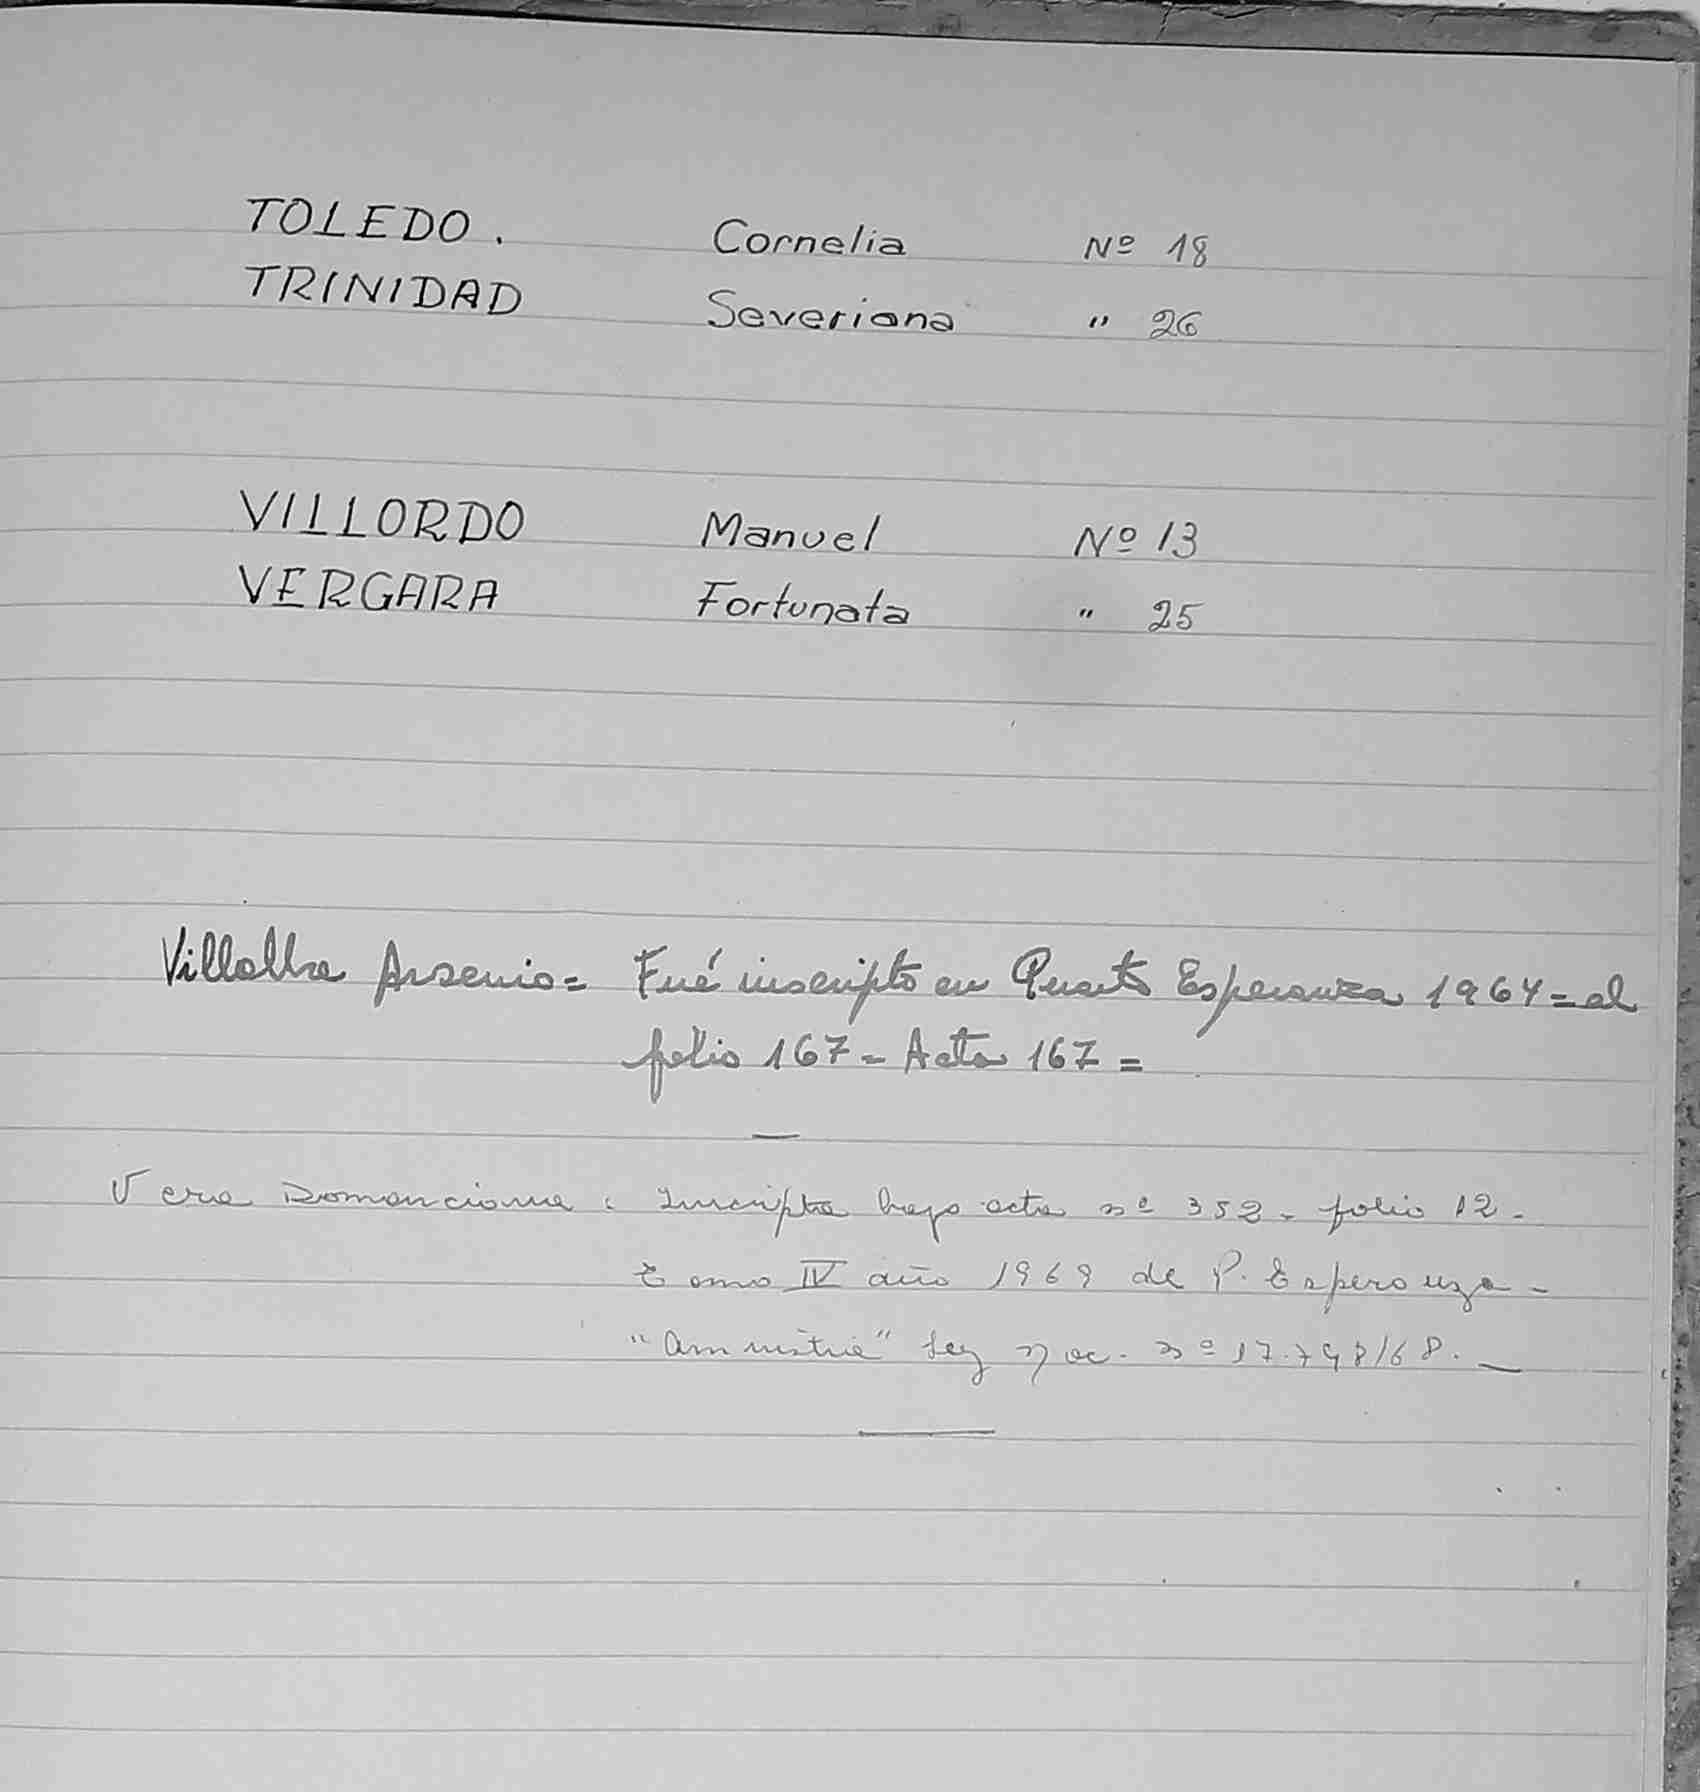 TOLEDO. Cornelia Nº 18
TRINIDAD Severiana " 26
VILLORDO Manuel Nº 13
VERGARA Fortunata " 25
Villalba Arsenio = Fué inscripto en Puerto Esperanza 1964 = al
folio 167 - Acta 167 =
Vera : Inscripta bajo acta nº 352 - folio 12 -
tomo IV año 1969 de P. Esperanza -
"Amnistia" Ley nac. nº 17.798/68. —